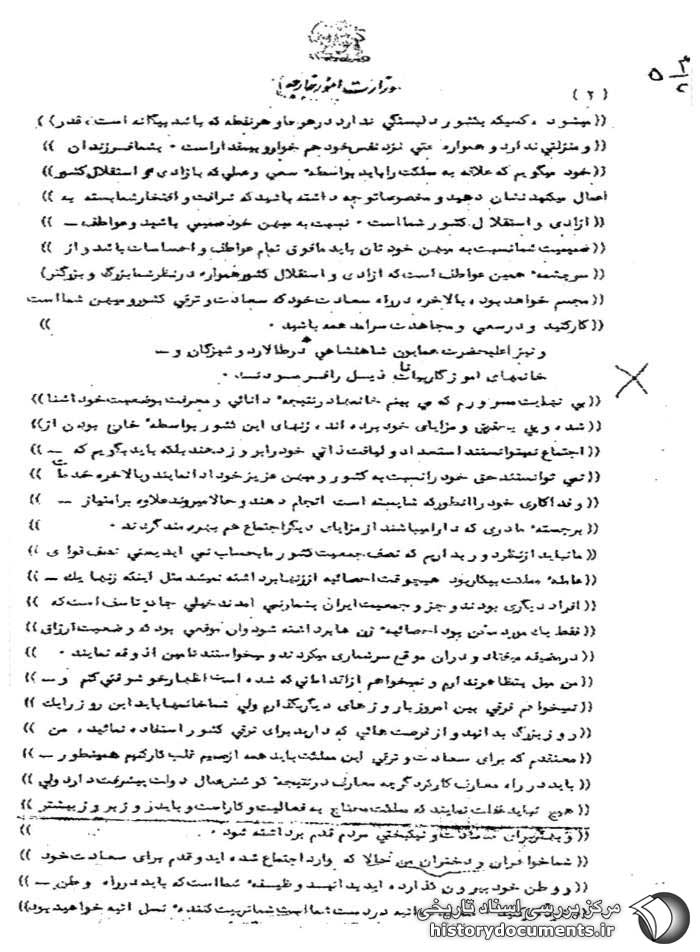 وزارت امور خارجه
(۲)
۵ ۳/۲
(( میشود ، کسیکه بکشور دلبستگی ندارد در هر جا و هر نقطه که باشد بیگانه است ، قدر ))
(( و منزلتی ندارد و همواره حتی نزد نفس خود هم خوار و بیمقدار است ۰ بشما فرزندان ))
(( خود میگویم که علاقه به مملکت را باید بواسطه سعی و عملی که بازادی و استقلال کشور ))
اعمال میکنید نشان دهید و مخصوصا توجه داشته باشید که شرافت و افتخار شما بسته به ))
(( ازادی و استقلال کشور شما است ۰ نسبت به میهن خود صمیمی باشید و عواطف ــ ))
(( صمیمیت شما نسبت به میهن خودتان باید مافوق تمام عواطف و احساسات باشد و از ))
(( سرچشمه همین عواطف است که ازادی و استقلال کشور همواره در نظر شما بزرگ و بزرگتر )
(( مجسم خواهد بود ، بالاخره در راه سعادت خود که سعادت و ترقی کشور و میهن شما است
(( کار کنید و در سعی و مجاهدت سرامد همه باشید ۰ ))
و نیز اعلیحضرت همایون شاهنشاهی در طالار دوشیزگان و ــ
خانمهای اموزگار بیانات ذیل را فرمودند ۰
(( بی نهایت مسرورم که می بینم خانمها در نتیجه دانائی و معرفت بوضعیت خود اشنا ))
(( شده و پی بحقوق و مزایای خود برده اند ، زنهای این کشور بواسطه خارج بودن از ))
(( اجتماع نمیتوانستند استعداد و لیاقت ذاتی خود را بروز دهند بلکه باید بگویم که ــ ))
(( نمی توانستند حق خود را نسبت به کشور و میهن عزیز خود ادا نمایند و بالاخره خدمات ))
(( و فداکاری خود را انطور که شایسته است انجام دهند و حالا میروند علاوه بر امتیاز ــ ))
(( برجسته مادری که دارا میباشند از مزایای دیگر اجتماع هم بهره مند گردند ۰ ))
(( ما نباید از نظر دور بداریم که نصف جمعیت کشور ما بحساب نمی امد یعنی نصف قوای ))
(( عامله مملکت بیکار بود هیچوقت احصائیه از زنها برداشته نمیشد مثل اینکه زنها یک ــ ))
(( افراد دیگری بودند و جزو جمعیت ایران بشمار نمی امدند خیلی جای تاسف است که ))
(( فقط یک مورد ممکن بود احصائیه زن ها برداشته شود و ان موقعی بود که وضعیت ارزاق ))
(( در مضیقه میفتاد و در ان موقع سرشماری میکردند و میخواستند تامین اذوقه نمایند ۰ ))
(( من میل بتظاهر ندارم و نمیخواهم از اقداماتی که شده است اظهار خوشوقتی کنم و ــ ))
(( نمیخواهم فرقی بین امروز با روزهای دیگر بگذارم ولی شما خانمها باید این روز را یک ))
(( روز بزرگ بدانید و از فرصت هائی که دارید برای ترقی کشور استفاده نمائید ، من ))
(( معتقدم که برای سعادت و ترقی این مملکت باید همه از صمیم قلب کار کنیم همینطور ــ ))
(( باید در راه معارف کار کرد گرچه معارف در نتیجه کوشش عمال دولت پیشرفت دارد ولی ))
(( هیچ نباید غفلت نمایند که مملکت محتاج به فعالیت و کار است و باید روز بروز بیشتر ))
(( و بهتر برای سعادت و نیکبختی مردم قدم برداشته شود ۰ ))
(( شما خواهران و دختران من حالا که وارد اجتماع شده اید و قدم برای سعادت خود ))
(( و وطن خود بیرون گذارده اید بدانید وظیفه شما است که باید در راه وطن ــ ))
اتیه در دست شما است شما تربیت کننده نسل اتیه خواهید بود ))
مرکز بررسی اسناد تاریخی
historydocuments.ir